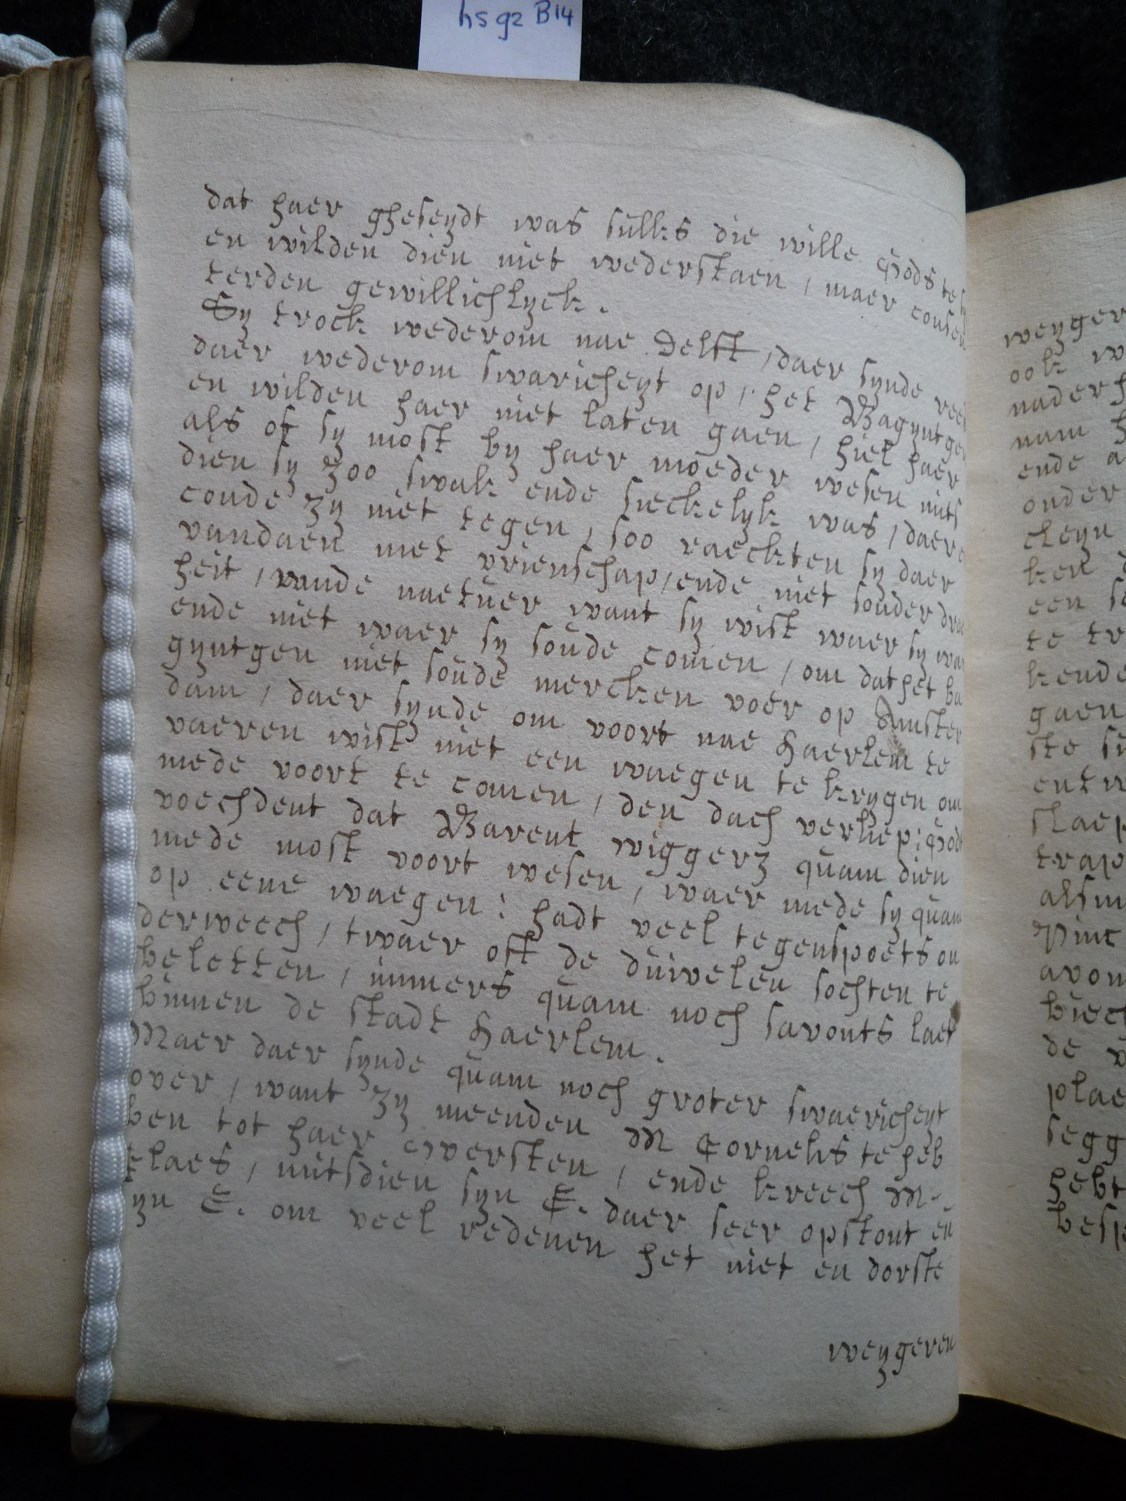 hs 92 B14
dat haer gheseydt was sulks die wille Gods te
en wilden dien niet wederstaen, maer
terden gewillichlyck.
Sy trock wederom nae Delft, daer synde
daer wederom swaricheyt op, het
en wilden haer niet laten gaen, hiel haer
als of sy most by haer moeder wesen mits
dien sy zoo swak ende sieckelyk was, daer
conde zy niet tegen, soo raeckten sy daer
vandaen met vrienschap, ende niet sonder
heit, vande naetuer want sy wist waer sy
ende niet waer sy soude comen, om dat het ba
gyntgen niet soude mercken voer op Amster
dam, daer synde om voort nae Haerlem te
vaeren wist niet een waegen te krygen om
mede voort te comen, den dach verliep: God
voechdent dat Barent wiggerz quam dien
mede most voort wesen, waer mede sy quam
op eene waegen: hadt veel tegenspoets on
derweech, twaer oft de duivelen sochten te
beletten, immers quam noch savonts laet
binnen de stadt Haerlem.
Maer daer synde quam noch groter swaericheyt
over, want zy meenden M Cornelis te heb
ben tot haer oversten, ende kreech M.
Claes, mitsdien syn E. daer seer opstont en
zyn E. om veel redenen het niet en dorste
weygeren
weyger
ook
ende
onder
cleyn
ken
een
te
kende
gaen
ste
trap
avon
biech
de
plae
segg
hebt
besp